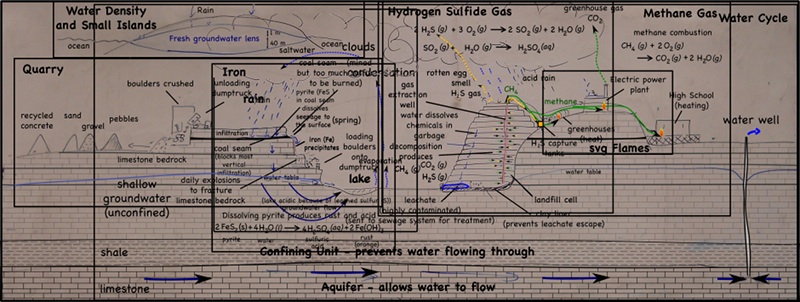 Water Density
and Small Islands
Rain
ocean
Fresh groundwater lens
saltwater
1 m
40 m
ocean
Hydrogen Sulfide Gas
2 H₂S (g) + 3 O₂ (g) → 2 SO₂ (g) + 2 H₂O (g)
SO₂ (g) + H₂O (g) → H₂SO₄ (aq)
greenhouse gas
CO₂
Methane Gas
methane combustion
CH₄ (g) + 2 O₂ (g)
→ CO₂ (g) + 2 H₂O (g)
Water Cycle
clouds
condensation
rain
evaporation
lake
Quarry
boulders crushed
recycled
concrete
sand
gravel
pebbles
unloading
dumptruck
limestone bedrock
Iron
coal seam
but too much
to be burned)
pyrite (FeS
in coal seam
dissolves
seepage to
the surface
(spring)
iron (Fe)
precipitates
infiltration
coal seam
(blocks most
vertical
infiltration)
water table
loading
boulders
onto
dumptruck
daily explosions
to fracture
limestone bedrock
shallow
groundwater
(unconfined)
groundwater flow
Dissolving pyrite produces rust and acid
2 FeS₂(s) + 4 H₂O (l) → 4 H₂SO₄(aq) + 2 Fe(OH)₃
pyrite
water
sulfuric
rust
(orange)
rotten egg
smell
H₂S gas
gas
extraction
well
water dissolves
chemicals in
garbage
decomposition
produces
CH₄ (g)
CO₂ (g)
H₂S (g)
leachate
(highly contaminated)
(sent to sewage system for treatment)
acid rain
CH₄
methane
Electric power
plant
High School
(heating)
greenhouses
(heat)
H₂S capture
tanks
svg Flames
water table
landfill cell
clay liner
(prevents leachate escape)
water well
shale
Confining Unit - prevents water flowing through
limestone
Aquifer - allows water to flow